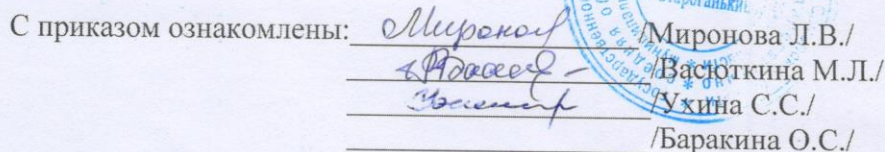 Староганьки
С приказом ознакомлены: Миронов /Миронова Л.В./
/Васюткина М.Л./
/Ухина С.С./
/Баракина О.С./